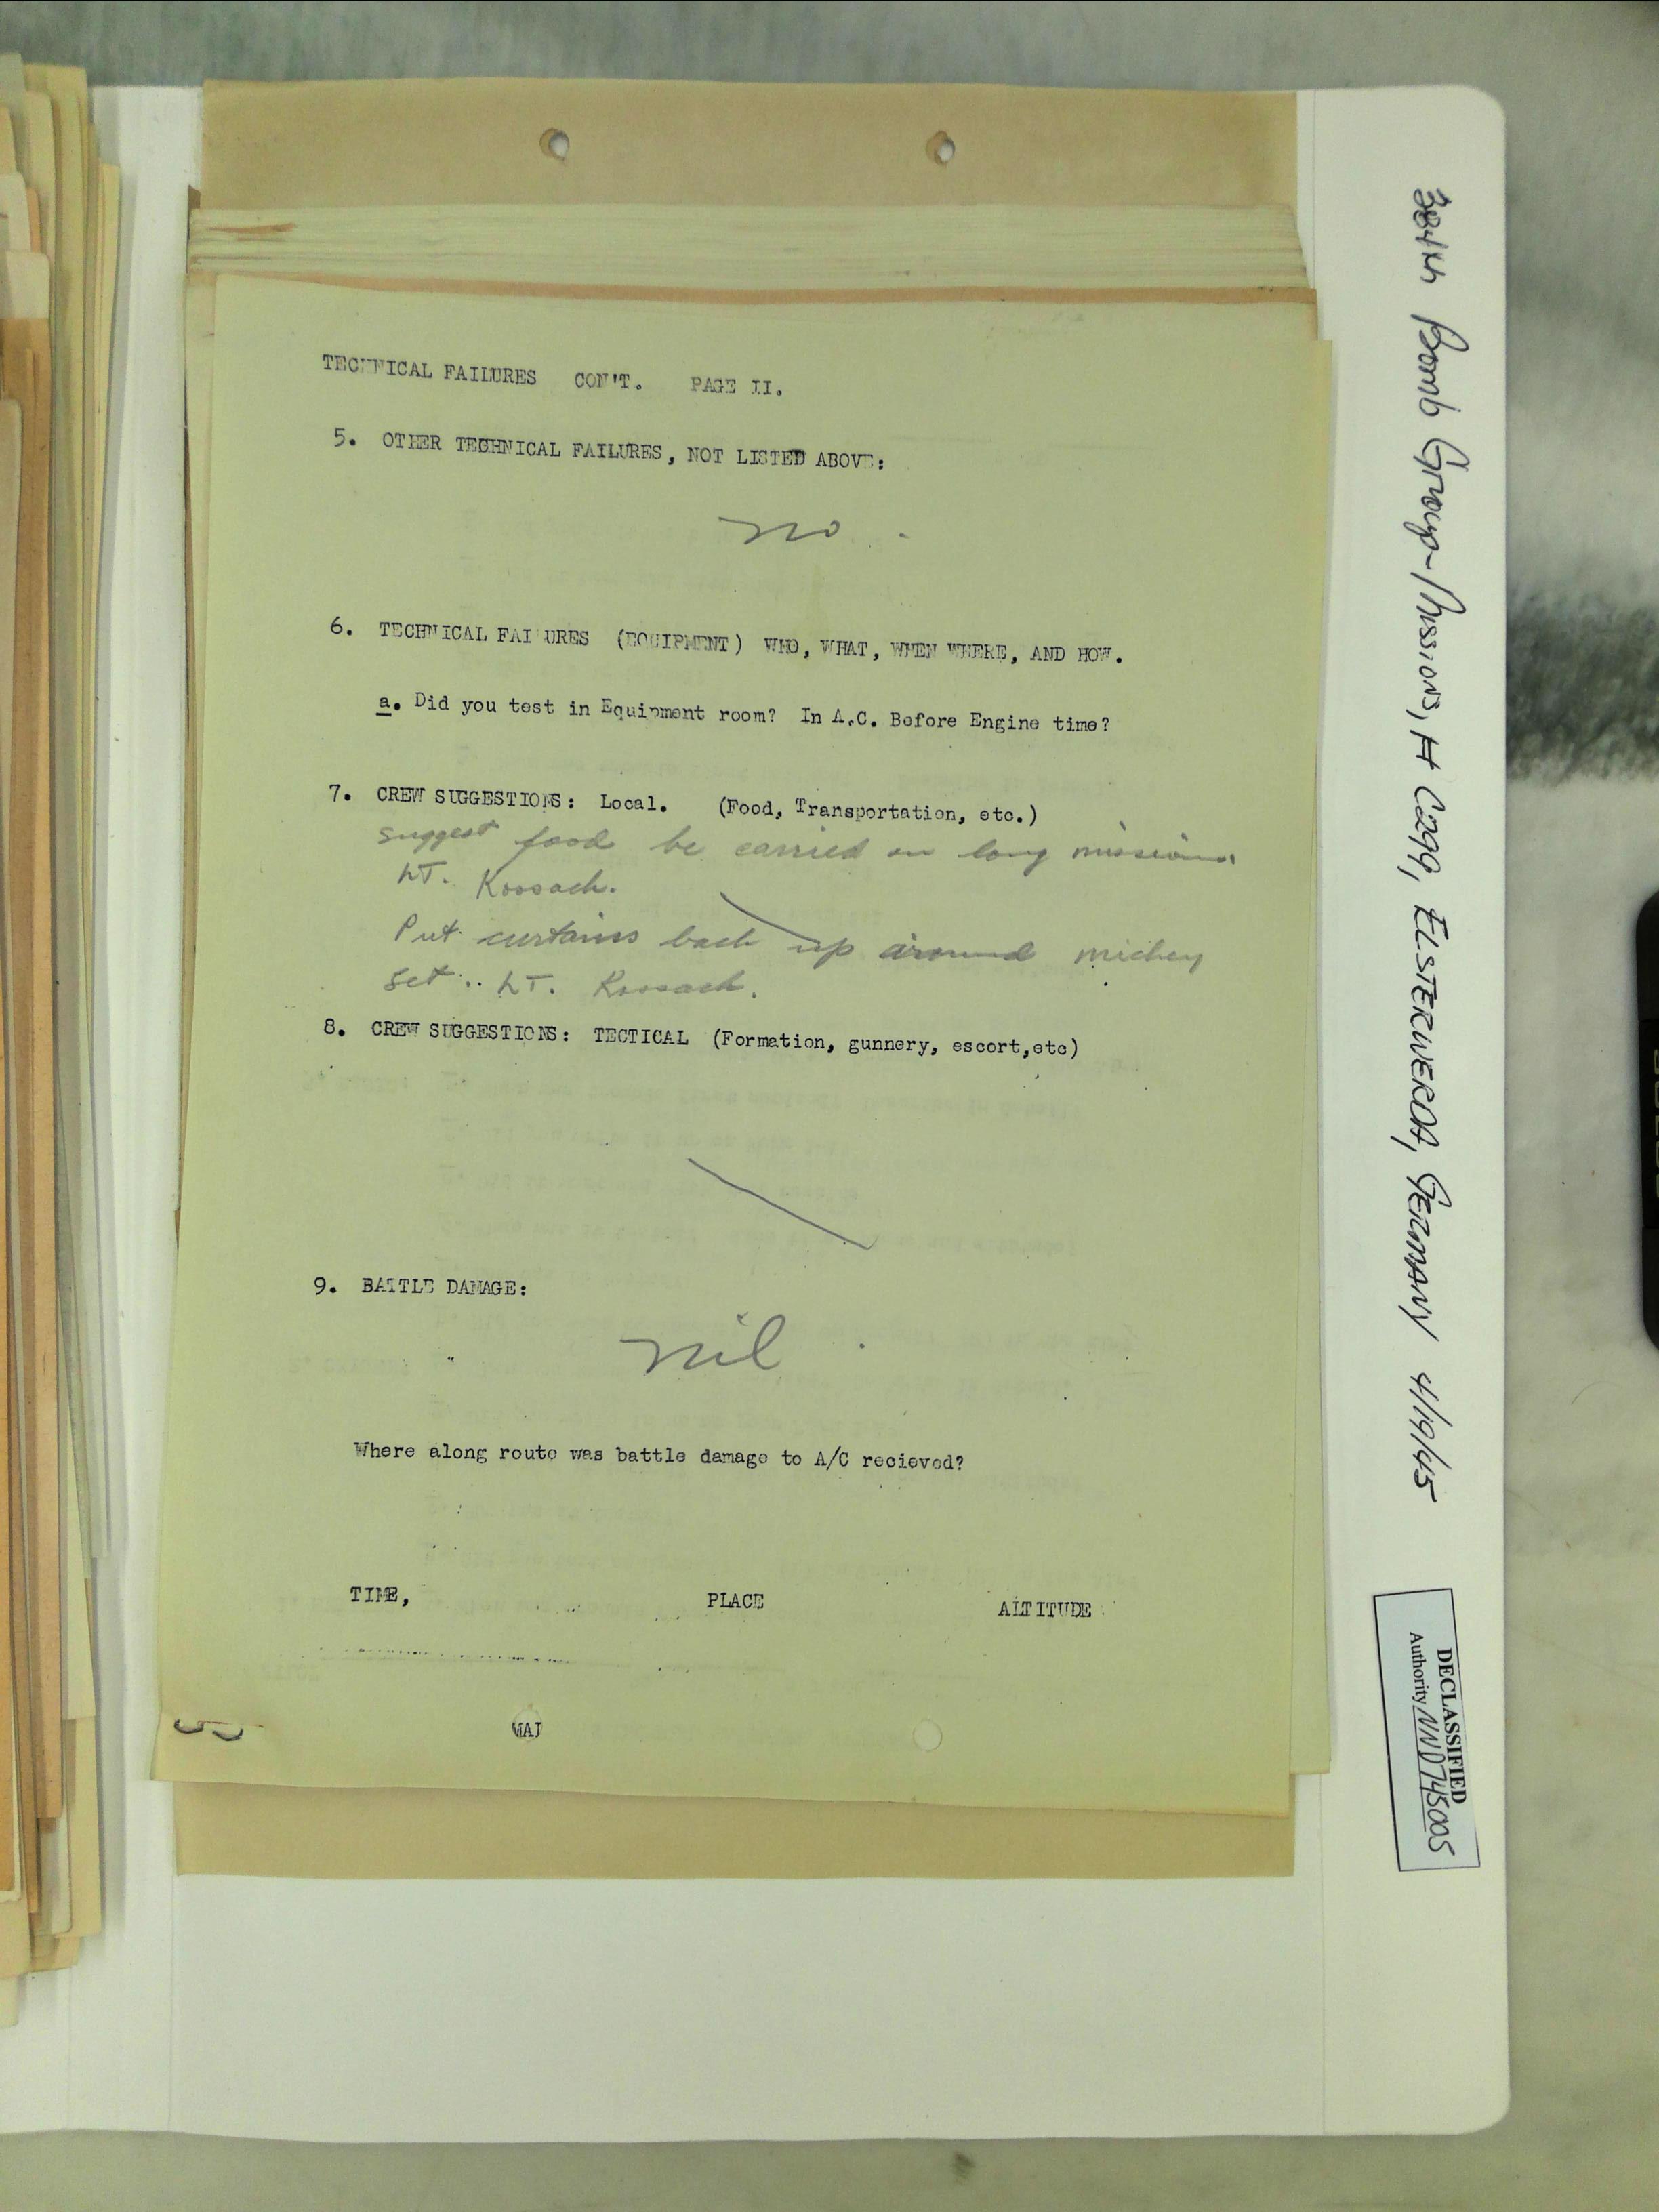 TECHNICAL FAILURES CON'T. PAGE II.
5. OTHER TECHNICAL FAILURES, NOT LISTED ABOVE:
no.
6. TECHNICAL FAILURES (EQUIPMENT) WHO, WHAT, WHEN WHERE, AND HOW.
a. Did you test in Equipment room? In A.C. Before Engine time?
7. CREW SUGGESTIONS: Local. (Food, Transportation, etc.)
suggest food be carried on long missions.
LT. Kossach.
Put curtains back up around mickey
set.. LT. Kossach.
8. CREW SUGGESTIONS: TECTICAL (Formation, gunnery, escort,etc)
9. BATTLE DAMAGE:
nil
Where along route was battle damage to A/C recieved?
TIME, PLACE ALTITUDE
WAJ
384th Bomb Group-Missions, # C299, ELSTERWERDA, GERMANY 4/19/45
DECLASSIFIED
Authority NND745005